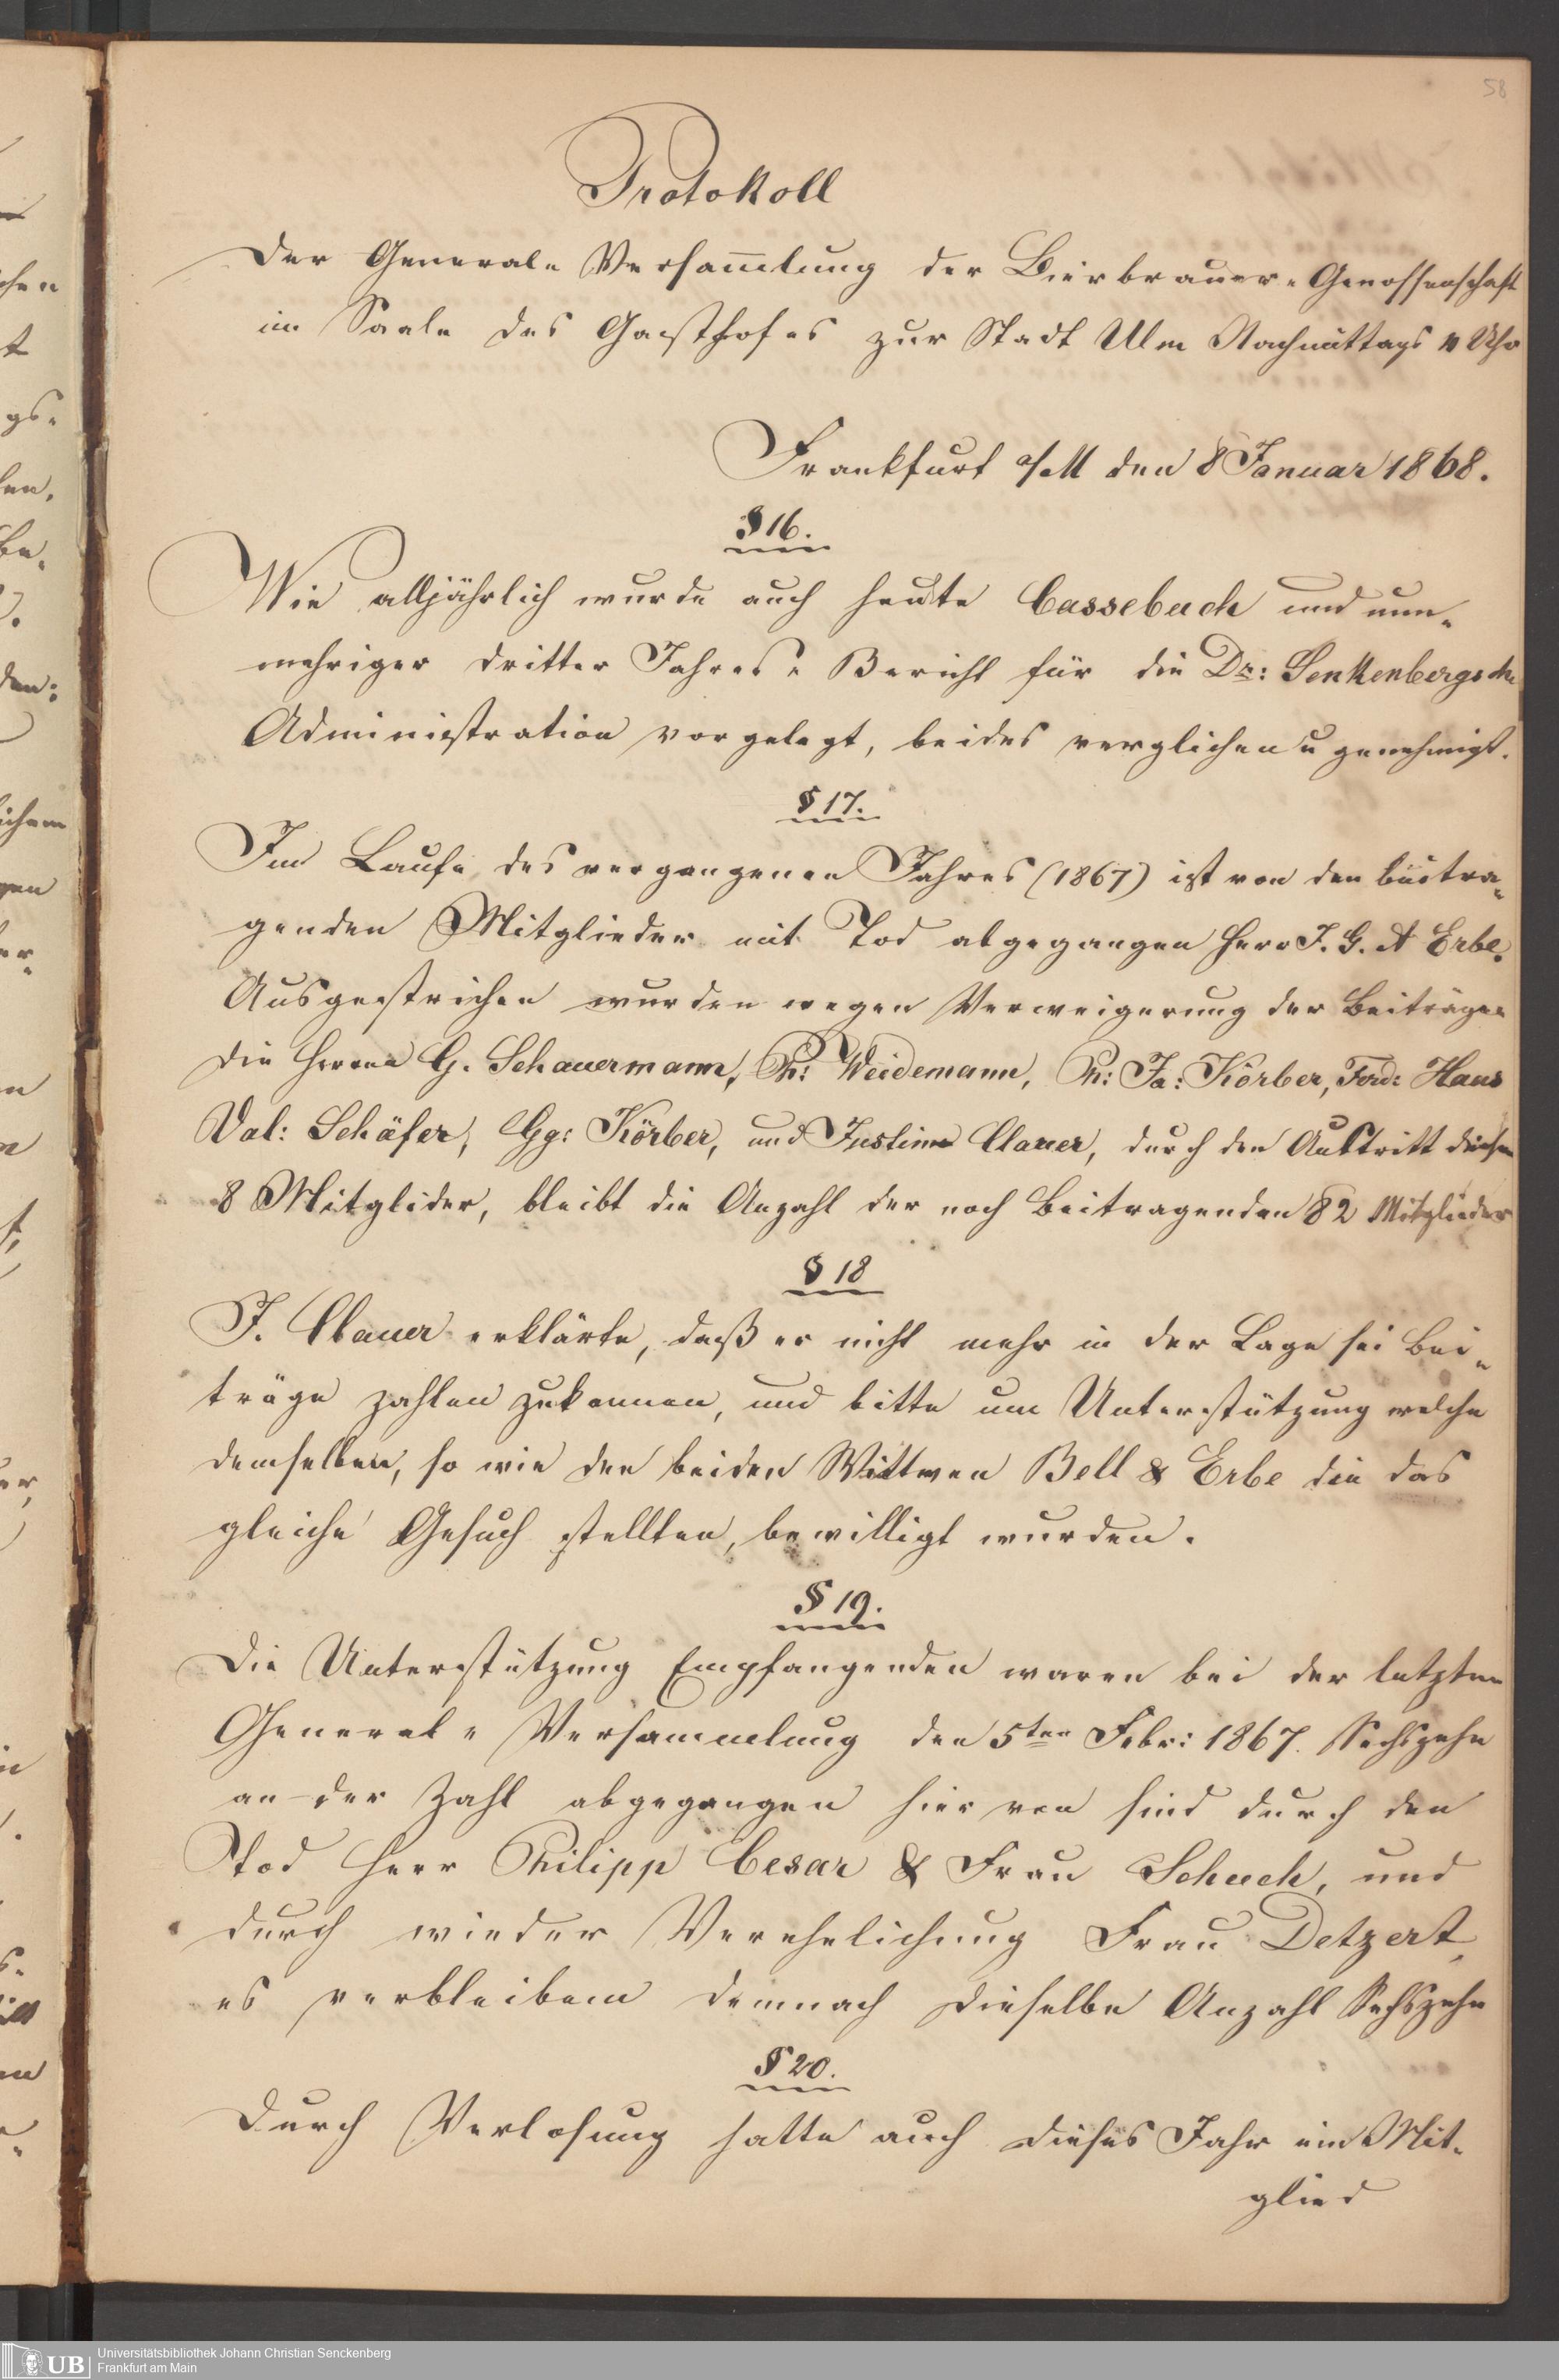 58
Protokoll
der General- Versam̄lung der Bierbrauer-Genossenschaft
im Saale des Gasthofes zur Stadt Ulm Nachmittags Uhr
Frankfurt a/M den 8 Januar 1868.
§ 16.
Wie alljährlich wurde auch heute Cassebuch und nun-
mehriger dritter Jahres- Bericht für die Dr: Senkenbergsche
Administration vorgelegt, beides verglichen u genehmigt.
§ 17.
Im Laufe des vergangenen Jahres (1867) ist von den beitra-
genden Mitglieder mit Tod abgegangen Herr J. G. A Erbe.
Ausgestrichen wurden wegen Verweigerung der Beiträgen
die Herren G. Schauermann, Ph: Weidemann, Ph: Ja: Körber, Ferd: Haus
Val: Schäfer, Gg: Körber, und Justine Clauer, durch den Austritt diesen
8 Mitglider, bleibt die Anzahl der noch Beitragenden 82 Mitglieder
§ 18
J. Clauer erklärte, daß er nicht mehr in der Lage sei Bei-
träge zahlen zukennen, und bitte um Unterstützung welche
demselben, so wie den beiden Wittwen Bell & Erbe die das
gleiche Gesuch stellten, bewilligt wurden.
§ 19.
Die Unterstützung Empfangenden waren bei der letzten
General- Versammlung den 5ten Febr: 1867. Sechszehn
an der Zahl abgegangen hier von sind durch den
Tod Herr Philipp Cesar & Frau Schuch, und
durch wieder Verehelichung Frau Detzert,
es verbleiben demnach dieselbe Anzahl Sechszehn
§ 20.
Durch Verlosung hatte auch dieses Jahr ein Mit-
glied
UB
Universitätsbibliothek Johann Christian Senckenberg
Frankfurt am Main